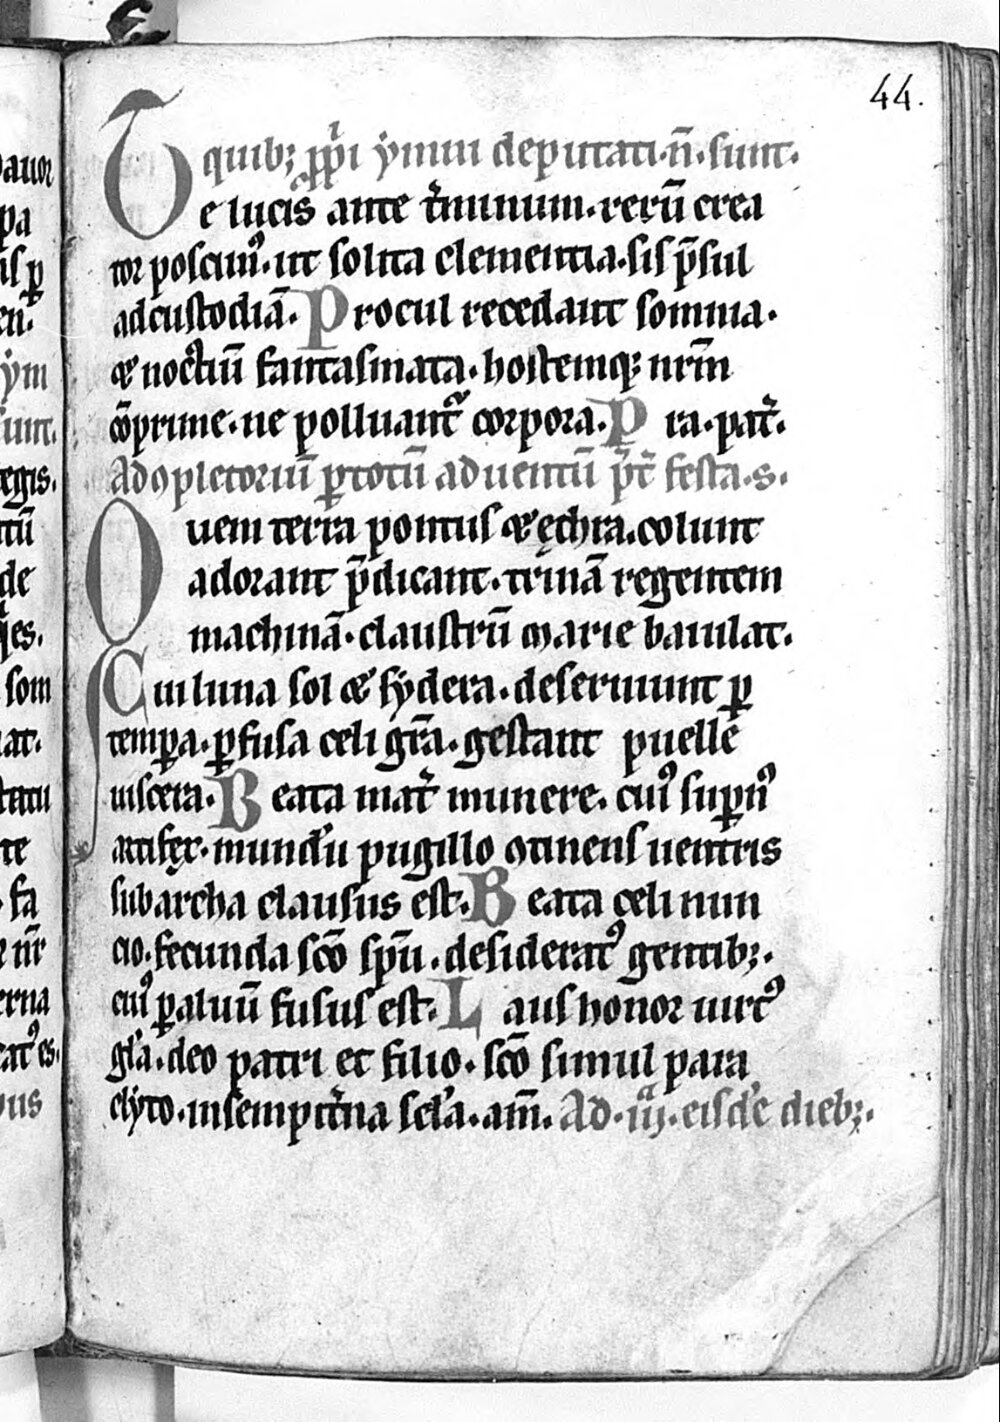 44.
quibꝫ ꝓp̄ı ẏmni deputati.n̄.sunt.
Te lucis ante t̓minum.rerū crea
tor poscimꝰ.ut solita clementia.sis p̄sul
ad custodiā. Procul recedant somnia.
⁊ noctiū fantasmata.hostemqꝫ nr̄m
cōprime.ne polluant᷑ corpora. P ra.pat̓.
Ad ꝯpletoriū ꝑ totū aduentū p̄t̓ festa.s.
Quem terra pontus ⁊ ęthra.colunt
adorant p̄dicant.trinā regentem
machinā.claustrū marie baiulat.
Cui luna sol ⁊ sẏdera.deseruiunt ꝑ
tempa.ꝑfusa celi gr̄a.gestant puelle
uiscera. Beata mat̓ munere.cuiꝰ supnꝰ
artifex.mundū pugillo ꝯtinens uentris
sub archa clausus est. Beata celi nun
cio.fecunda sc̄o sp̄u.desideratꝰ gentibꝫ.
cuiꝰ ꝑ aluū fusus est. Laus honor uirtꝰ
gl̓a.deo patri et filio.sc̄o simul para
clẏto.in sempit̓na scl̓a.am̄. Ad.iijᵃ.eisdē diebꝫ.
auor
pa
is ꝑ
en.
ẏm
sunt.
egis.
tū
de
es.
som
at.
tatu
te
fa
e nr̄
erna
catꝰ es.
ous